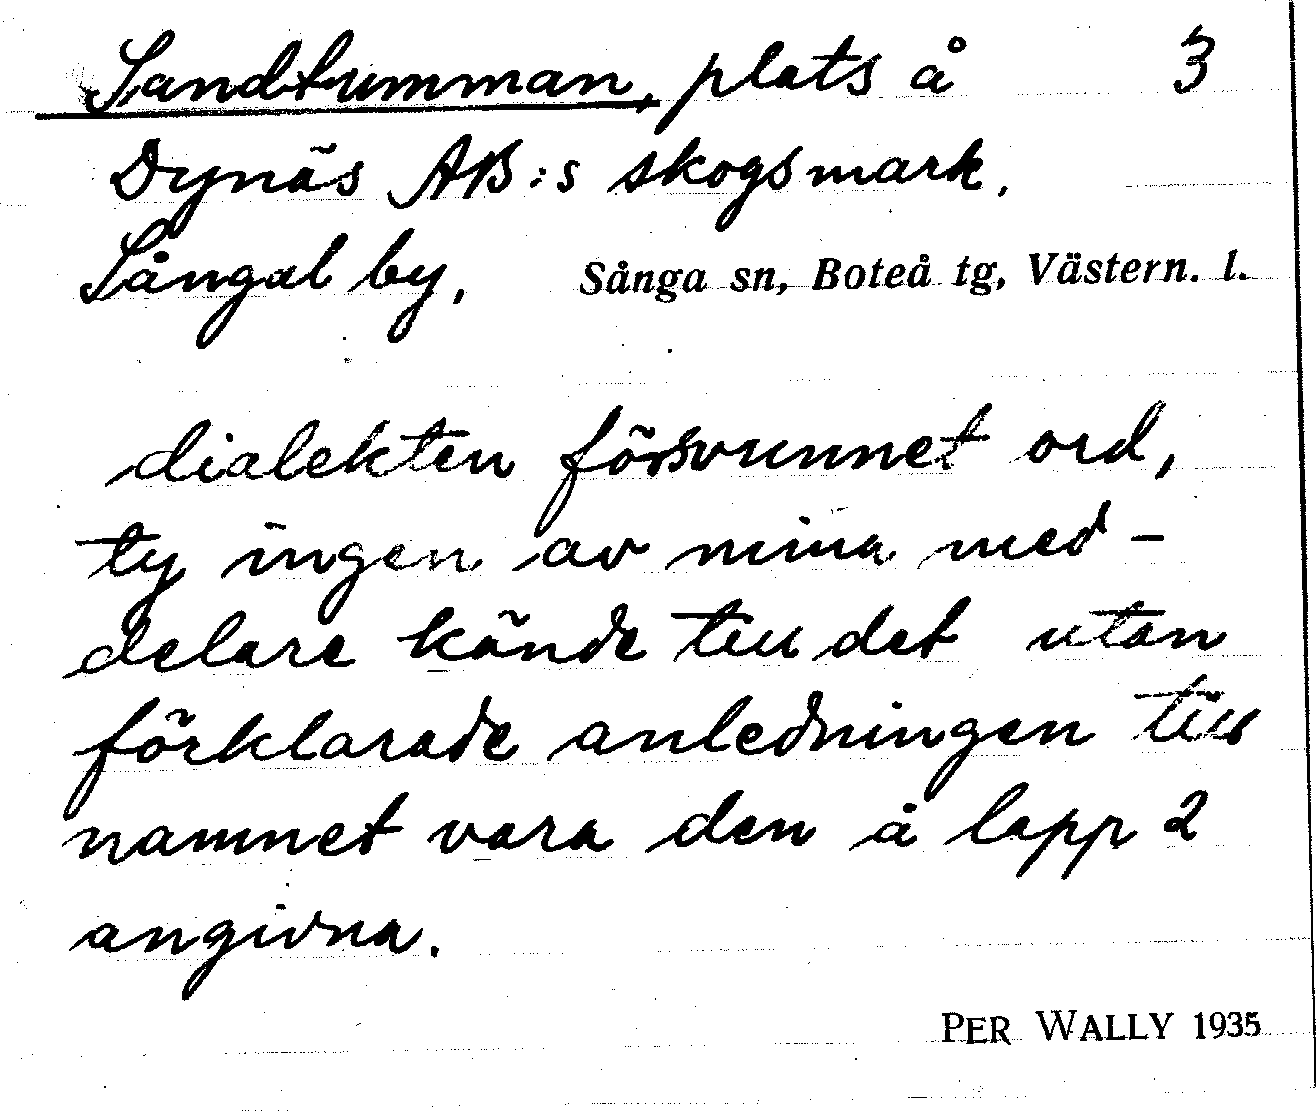 Sandtumman, plats å 3
Dynäs AB:s skogsmark.
Sångal by, Sånga sn, Boteå tg, Västern. l.
dialekten försvunnet ord,
ty ingen av mina med-
delare kände till det utan
förklarade anledningen till
namnet vara den å lapp 2
angivna.
PER WALLY 1935